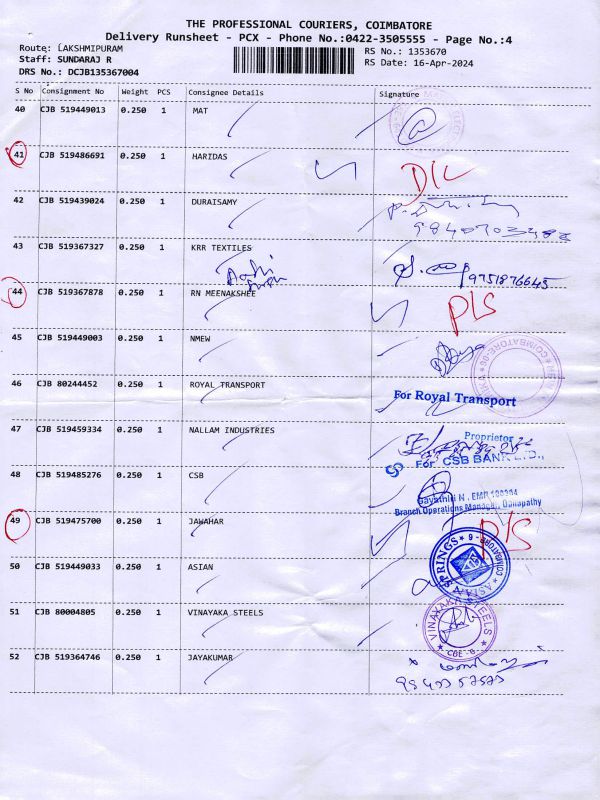 THE PROFESSIONAL COURIERS, COIMBATORE
Delivery Runsheet - PCX - Phone No.:0422-3505555 - Page No.:4
Route: LAKSHMIPURAM RS No.: 1353670
Staff: SUNDARAJ R RS Date: 16-Apr-2024
DRS No.: DCJB135367004
S No Consignment No Weight PCS Consignee Details Signature
40 CJB 519449013 0.250 1 MAT
41 CJB 519486691 0.250 1 HARIDAS D/L
42 CJB 519439024 0.250 1 DURAISAMY
43 CJB 519367327 0.250 1 KRR TEXTILES
9751876645
44 CJB 519367878 0.250 1 RN MEENAKSHEE P/S
45 CJB 519449003 0.250 1 NMEW
46 CJB 80244452 0.250 1 ROYAL TRANSPORT For Royal Transport
47 CJB 519459334 0.250 1 NALLAM INDUSTRIES Proprietor
For CSB BANK LTD.,
48 CJB 519485276 0.250 1 CSB
Gayathiri N. EMP
Branch Operations Manager, Ganapathy
49 CJB 519475700 0.250 1 JAWAHAR P/S
50 CJB 519449033 0.250 1 ASIAN ASIAN SPRINGS COIMBATORE-6
51 CJB 80004805 0.250 1 VINAYAKA STEELS VINAYAKA STEELS CBE-6
52 CJB 519364746 0.250 1 JAYAKUMAR